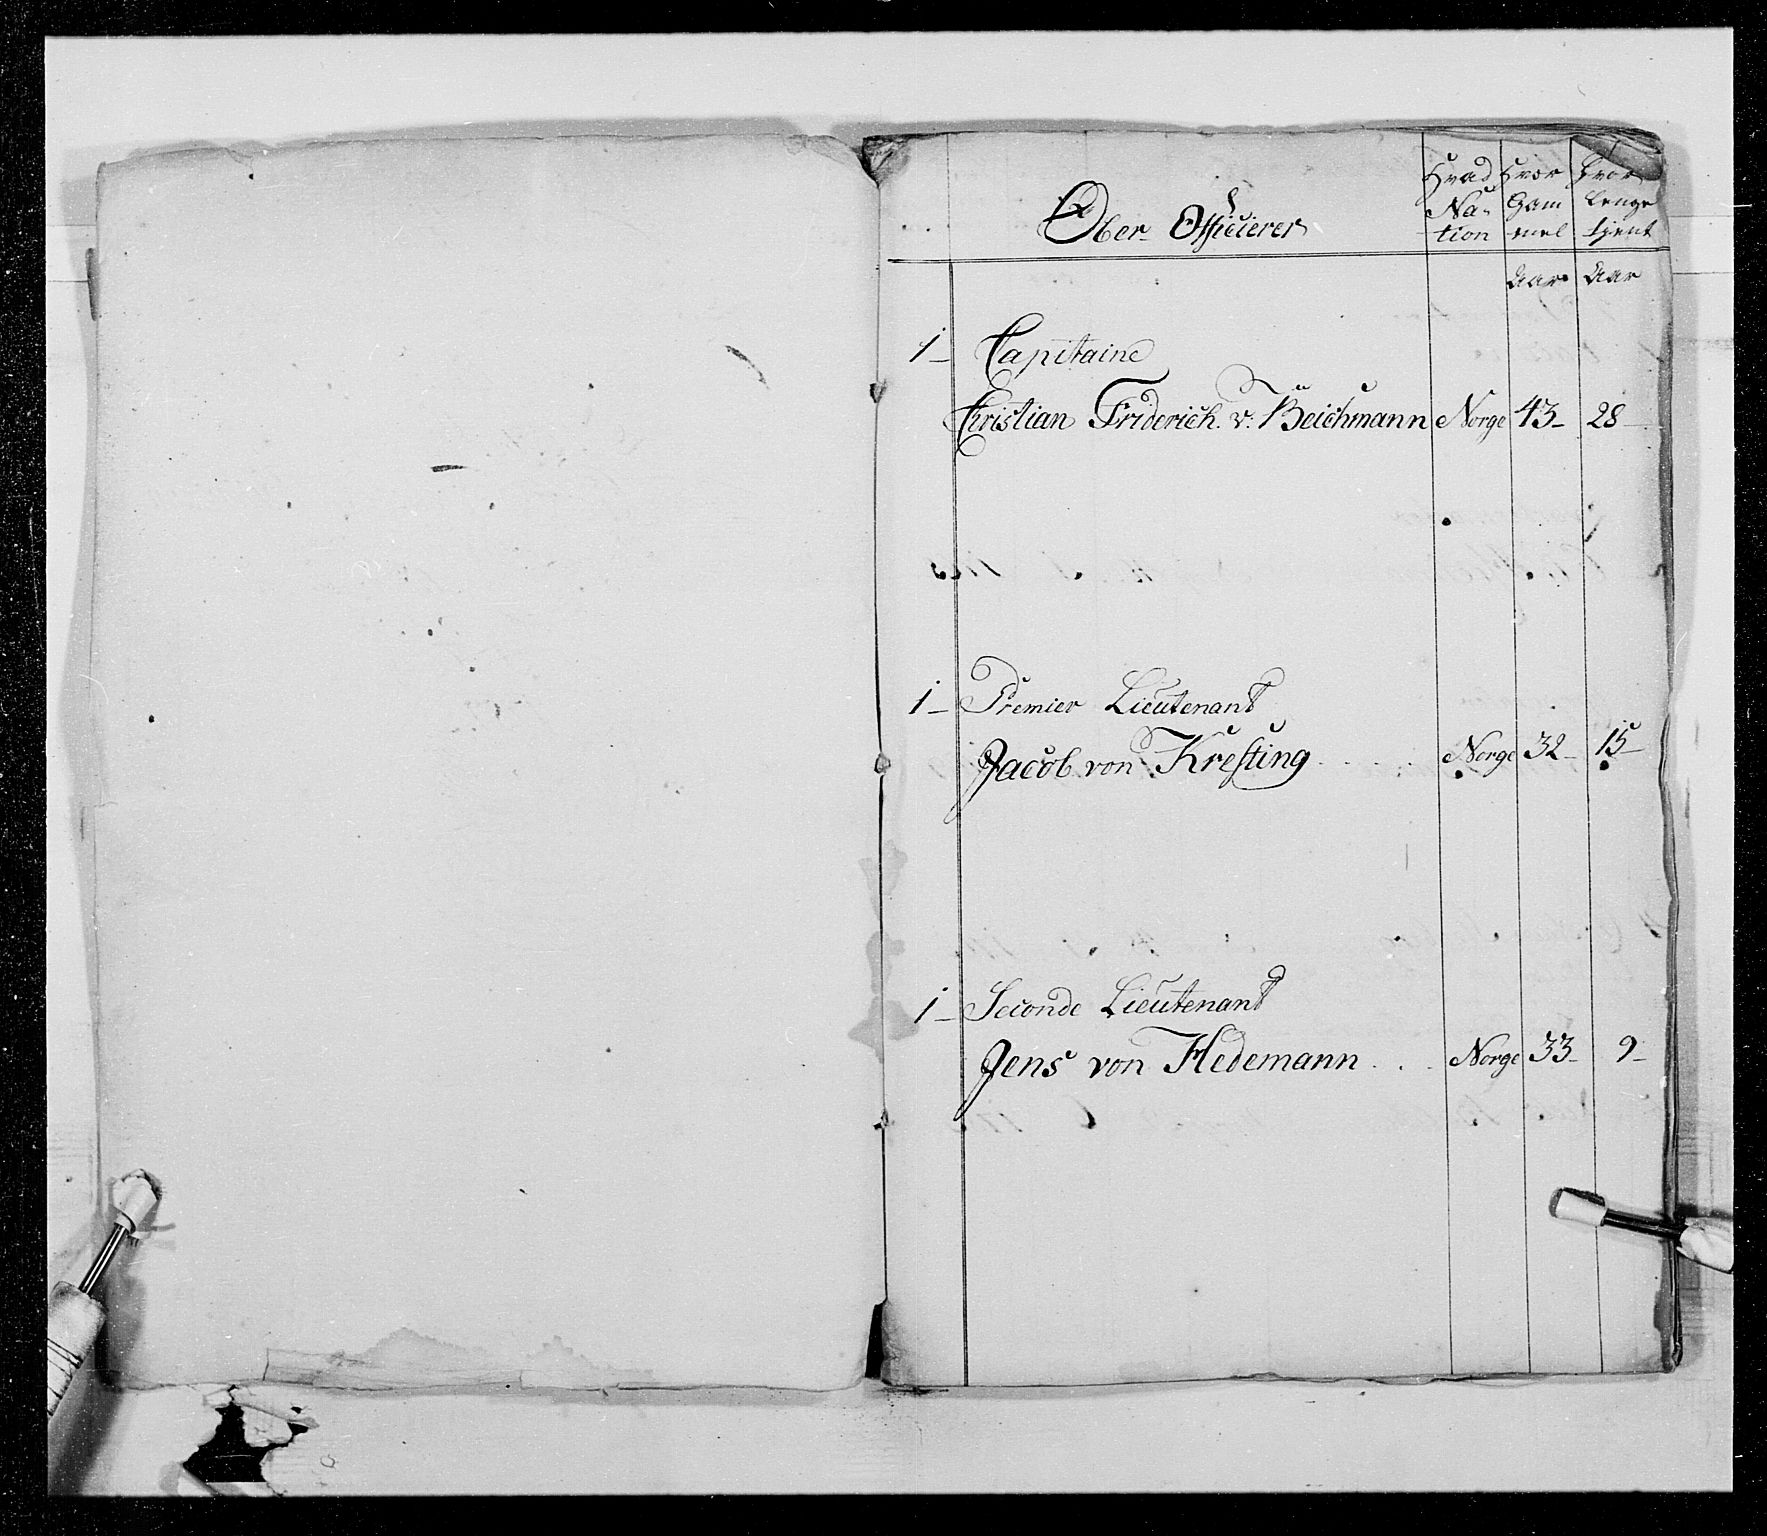 Ober Officierer
Hvad Nation
Hvor Gammel
Hvor Lenge tient
Aar Aar
1 Capitaine
Christian Friderich v. Beichmann Norge 43 28
1 Premier Lieutenant
Jacob von Kresting Norge 32 15
1 Seconde Lieutenant
Jens von Hedemann Norge 33 9